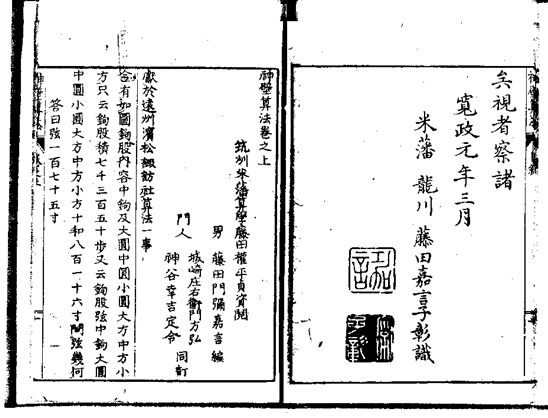 矣視者察諸
寛政元年三月
米藩 龍川 藤田嘉言子彰識
神壁算法巻之上
筑州米藩算學藤田權平貞資閲
男 藤田門彌嘉言 編
門人 城崎庄右衛門方弘
神谷幸吉定令 同訂
獻於遠州濱松諏訪社算法一事
今有如圖鉤股内容中鉤及大圓中圓小圓大方中方小
方只云鉤股積七千三百五十歩又云鉤股弦中鉤大圓
中圓小圓大方中方小方十和八百一十六寸問弦幾何
答曰弦一百七十五寸
一